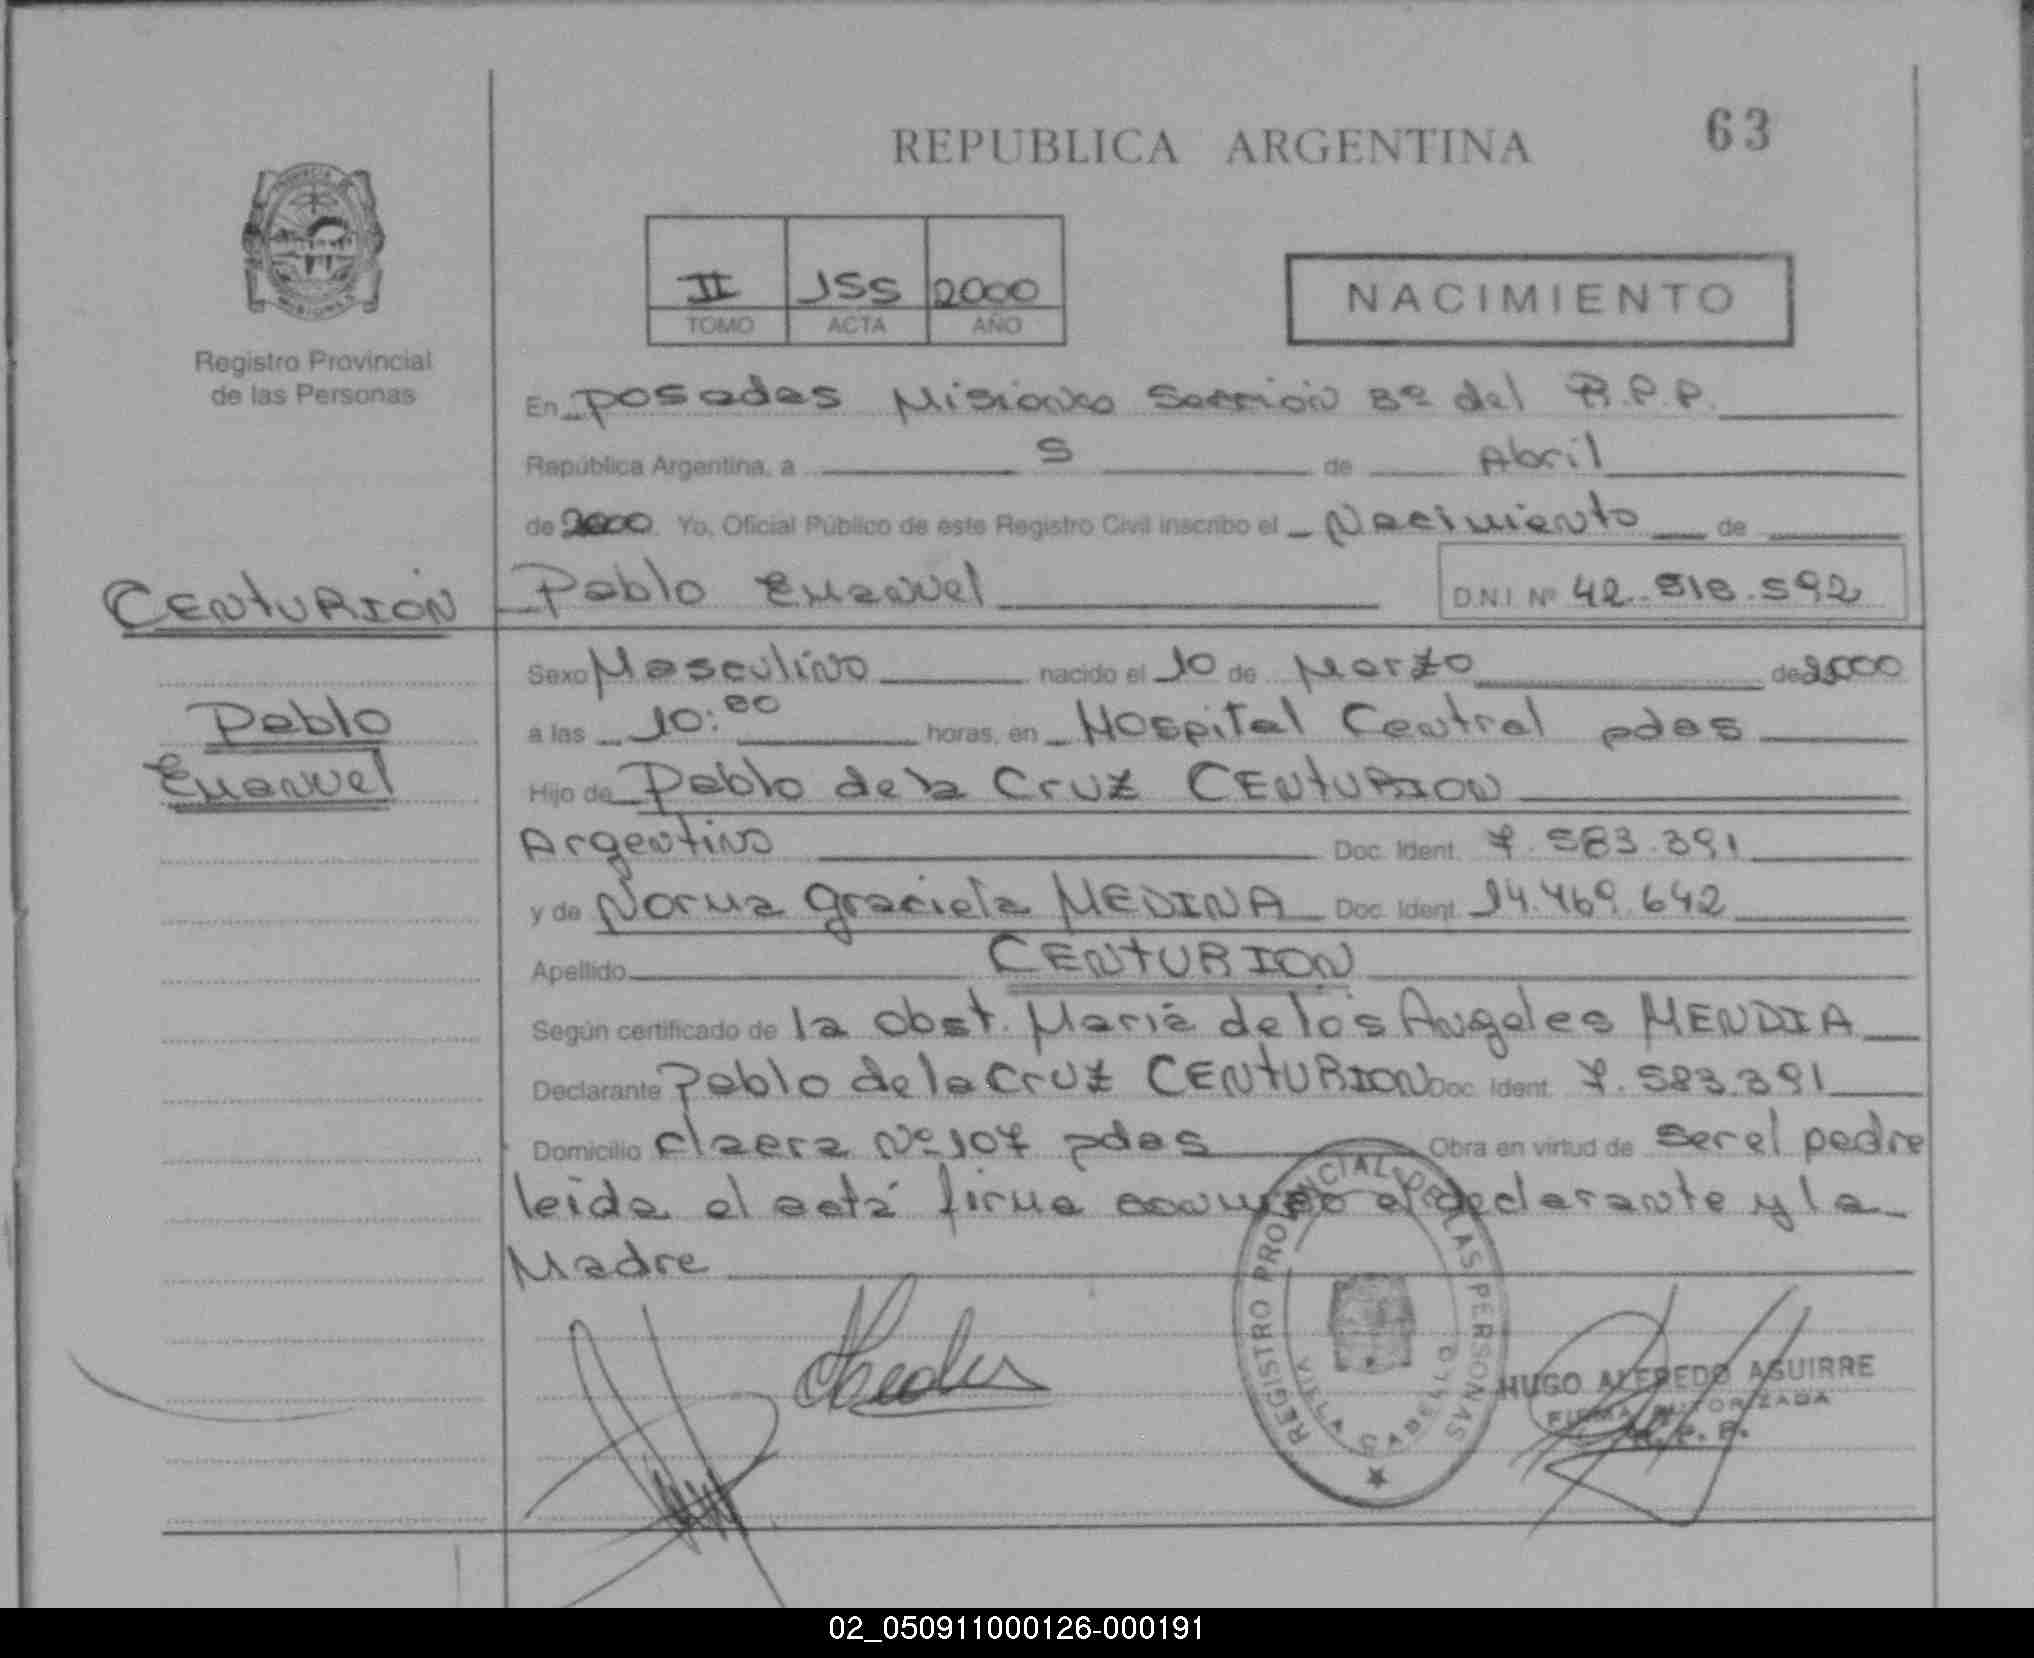 REPUBLICA ARGENTINA
63
II 155 2000
TOMO ACTA AÑO
NACIMIENTO
Registro Provincial
de las Personas
En Posadas Misiones Sección 3º del R.P.P.
República Argentina, a 5 de Abril
de 2000. Yo, Oficial Público de este Registro Civil inscribo el Nacimiento de
CENTURION
Pablo Emanuel D.N.I. Nº 42.518.592
Sexo Masculino nacido el 10 de Marzo de 2000
Pablo
Emanuel
a las 10:00 horas, en Hospital Central pdas
Hijo de Pablo de la Cruz CENTURION
Argentino Doc. Ident. 7.583.391
y de Norma Graciela MEDINA Doc. Ident. 14.469.642
Apellido CENTURION
Según certificado de la obst. Maria de los Angeles MENDIA
Declarante Pablo de la Cruz CENTURION Doc. Ident. 7.583.391
Domicilio Nº 107 pdas Obra en virtud de ser el padre
leida el acta firma conmigo el declarante y la
Madre
REGISTRO PROVINCIAL DE LAS PERSONAS
VILLA CABELLO
HUGO ALFREDO AGUIRRE
FIRMA AUTORIZADA
R.P.P.
02_050911000126-000191